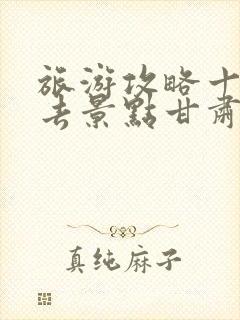 旅游攻略十
去景點甘肅
真纯麻子